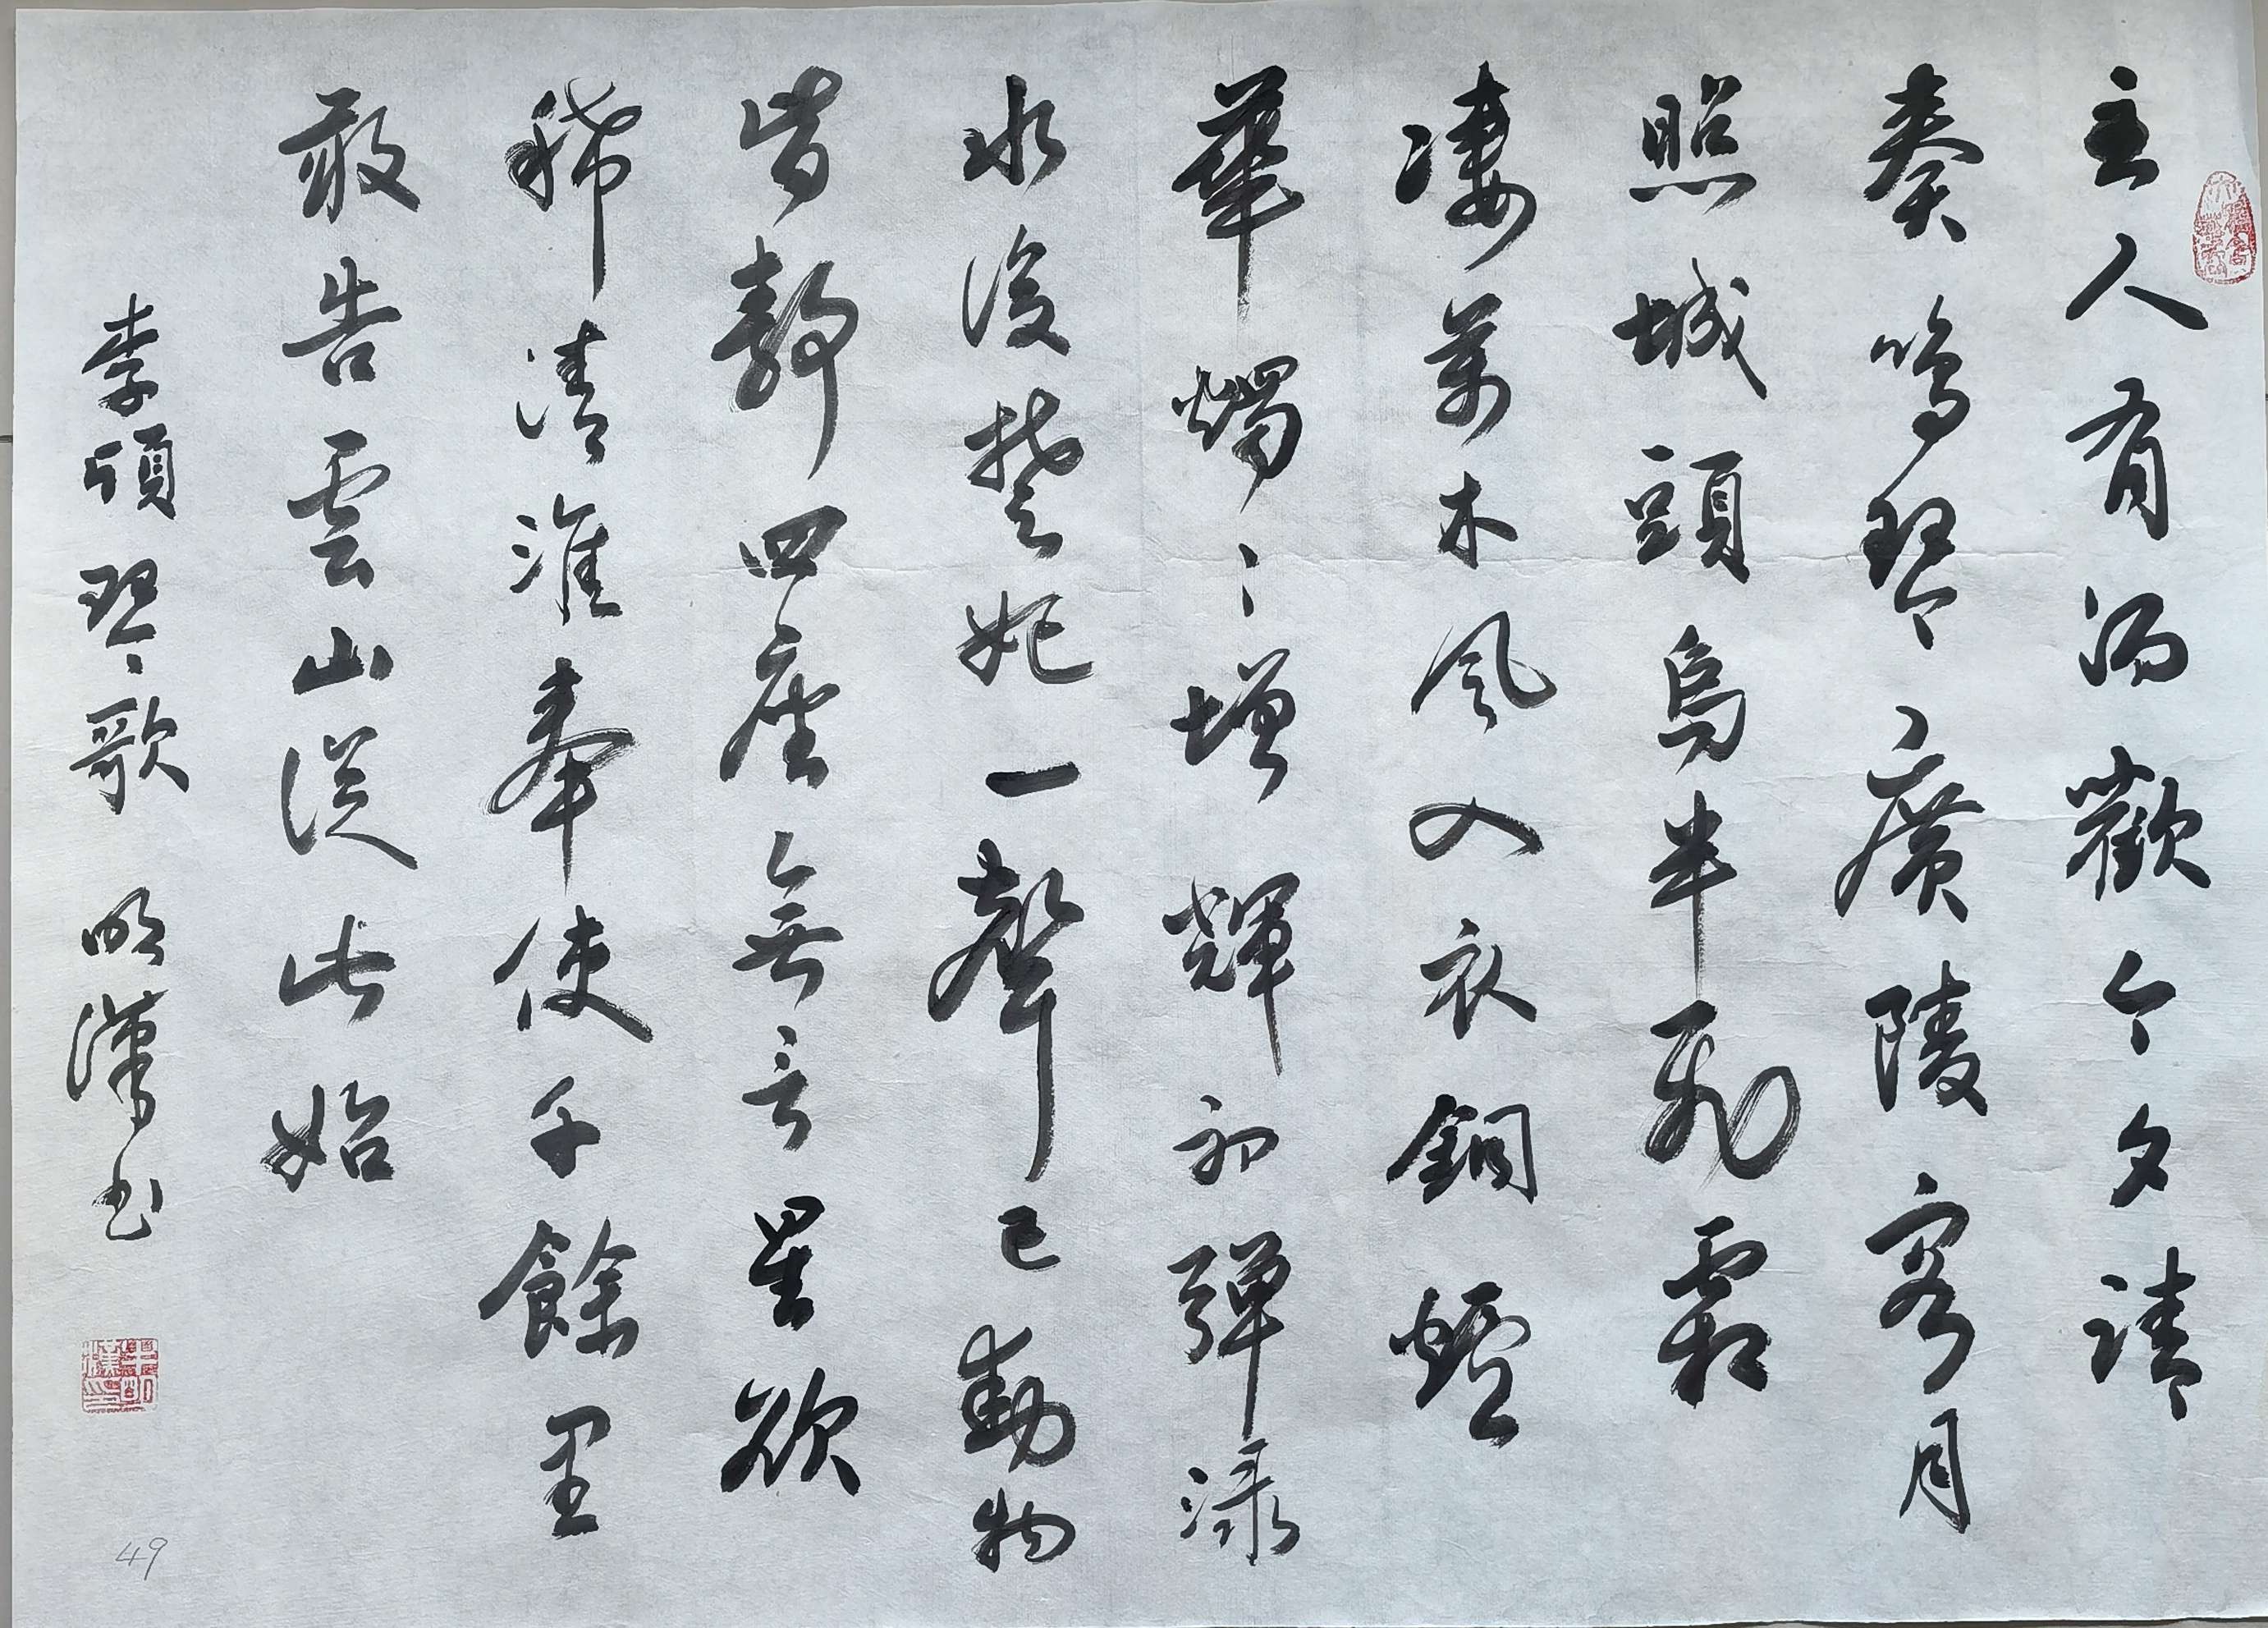 主人有酒歡今夕請
奏鳴琴廣陵客月
照城頭烏半飛霜
凄萬木風入衣銅爐
華燭〻增輝初彈淥
水後楚妃一聲已動物
皆靜四座無言星欲
稀清淮奉使千餘里
敢告雲山從此始
李頎琴歌 明漢书
49